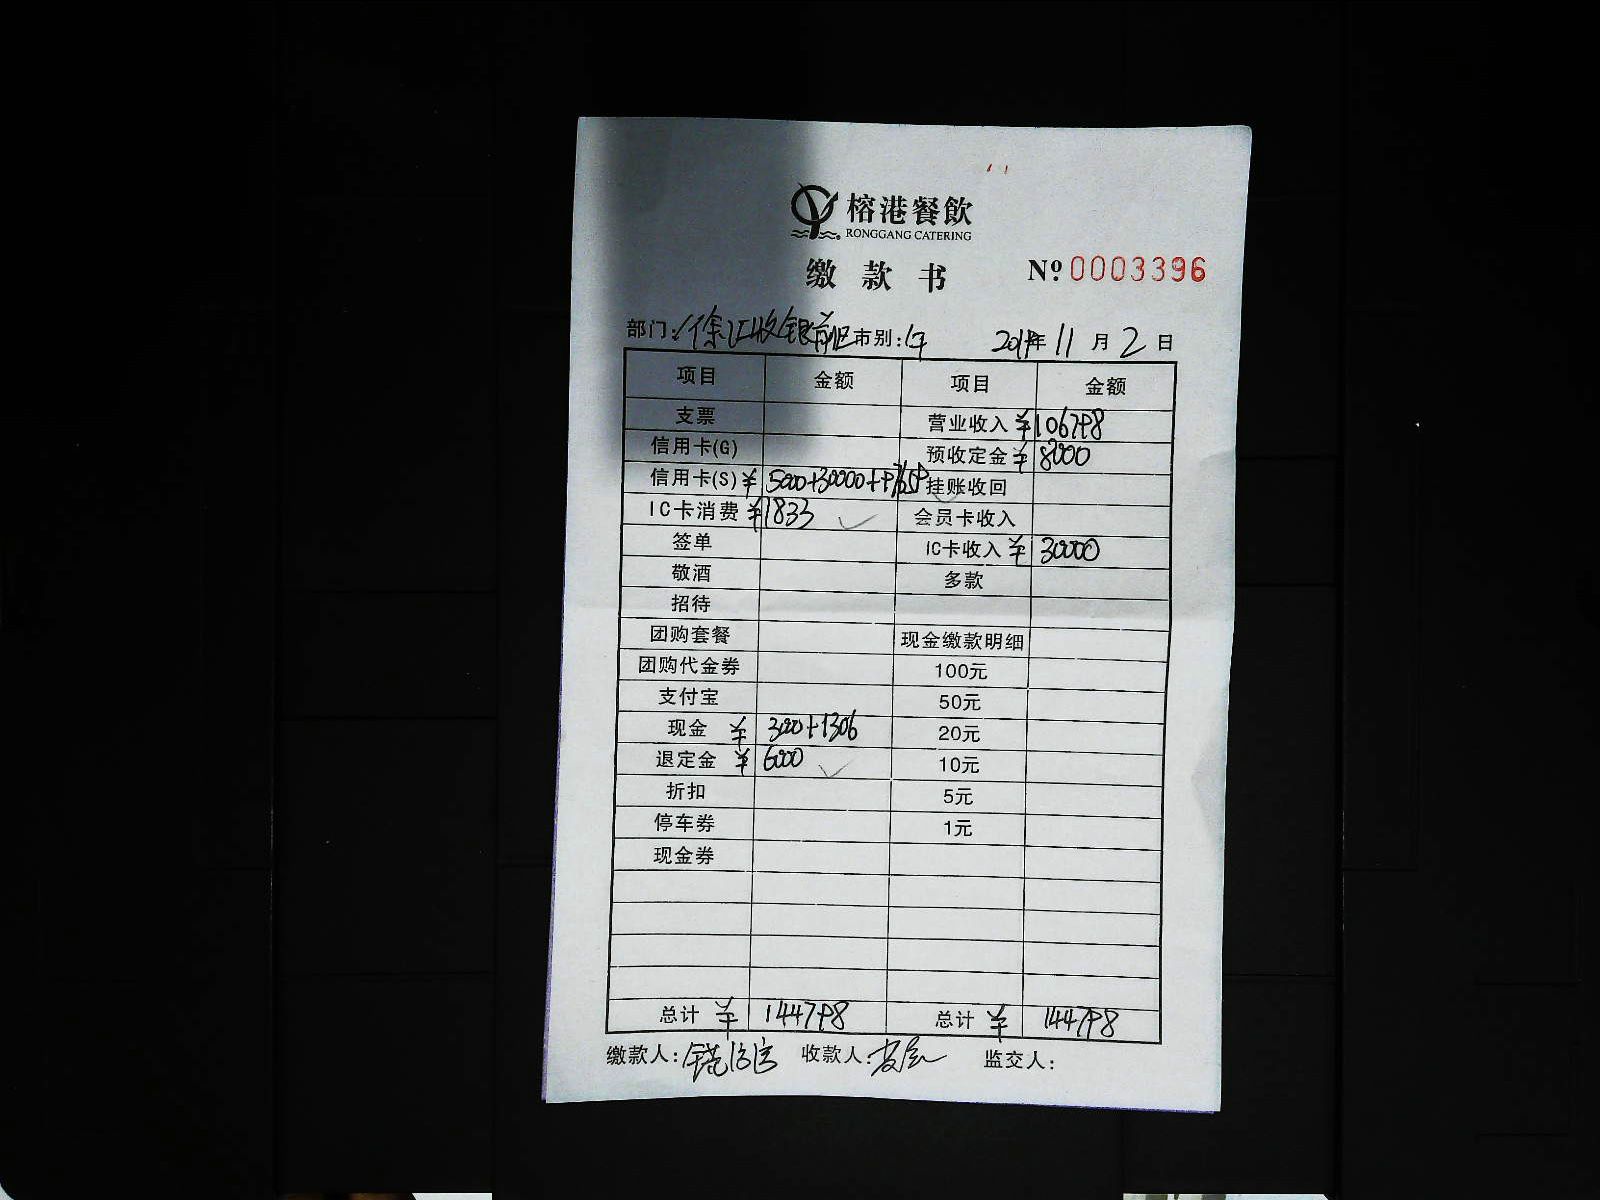 榕港餐飲
RONGGANG CATERING
缴款书 Nº 0003396
部门: 徐汇收银 市别: 2019年 11月 2日
项目 金额 项目 金额
支票 营业收入 ¥106798
信用卡(G) 预收定金 ¥8000
信用卡(S) ¥5000+30000+97659 挂账收回
IC卡消费 ¥1833 会员卡收入
签单 IC卡收入 ¥30000
敬酒 多款
招待
团购套餐 现金缴款明细
团购代金券 100元
支付宝 50元
现金 ¥3000+1306 20元
退定金 ¥6000 10元
折扣 5元
停车券 1元
现金券
总计 ¥144798 总计 ¥144798
缴款人: 收款人: 监交人: